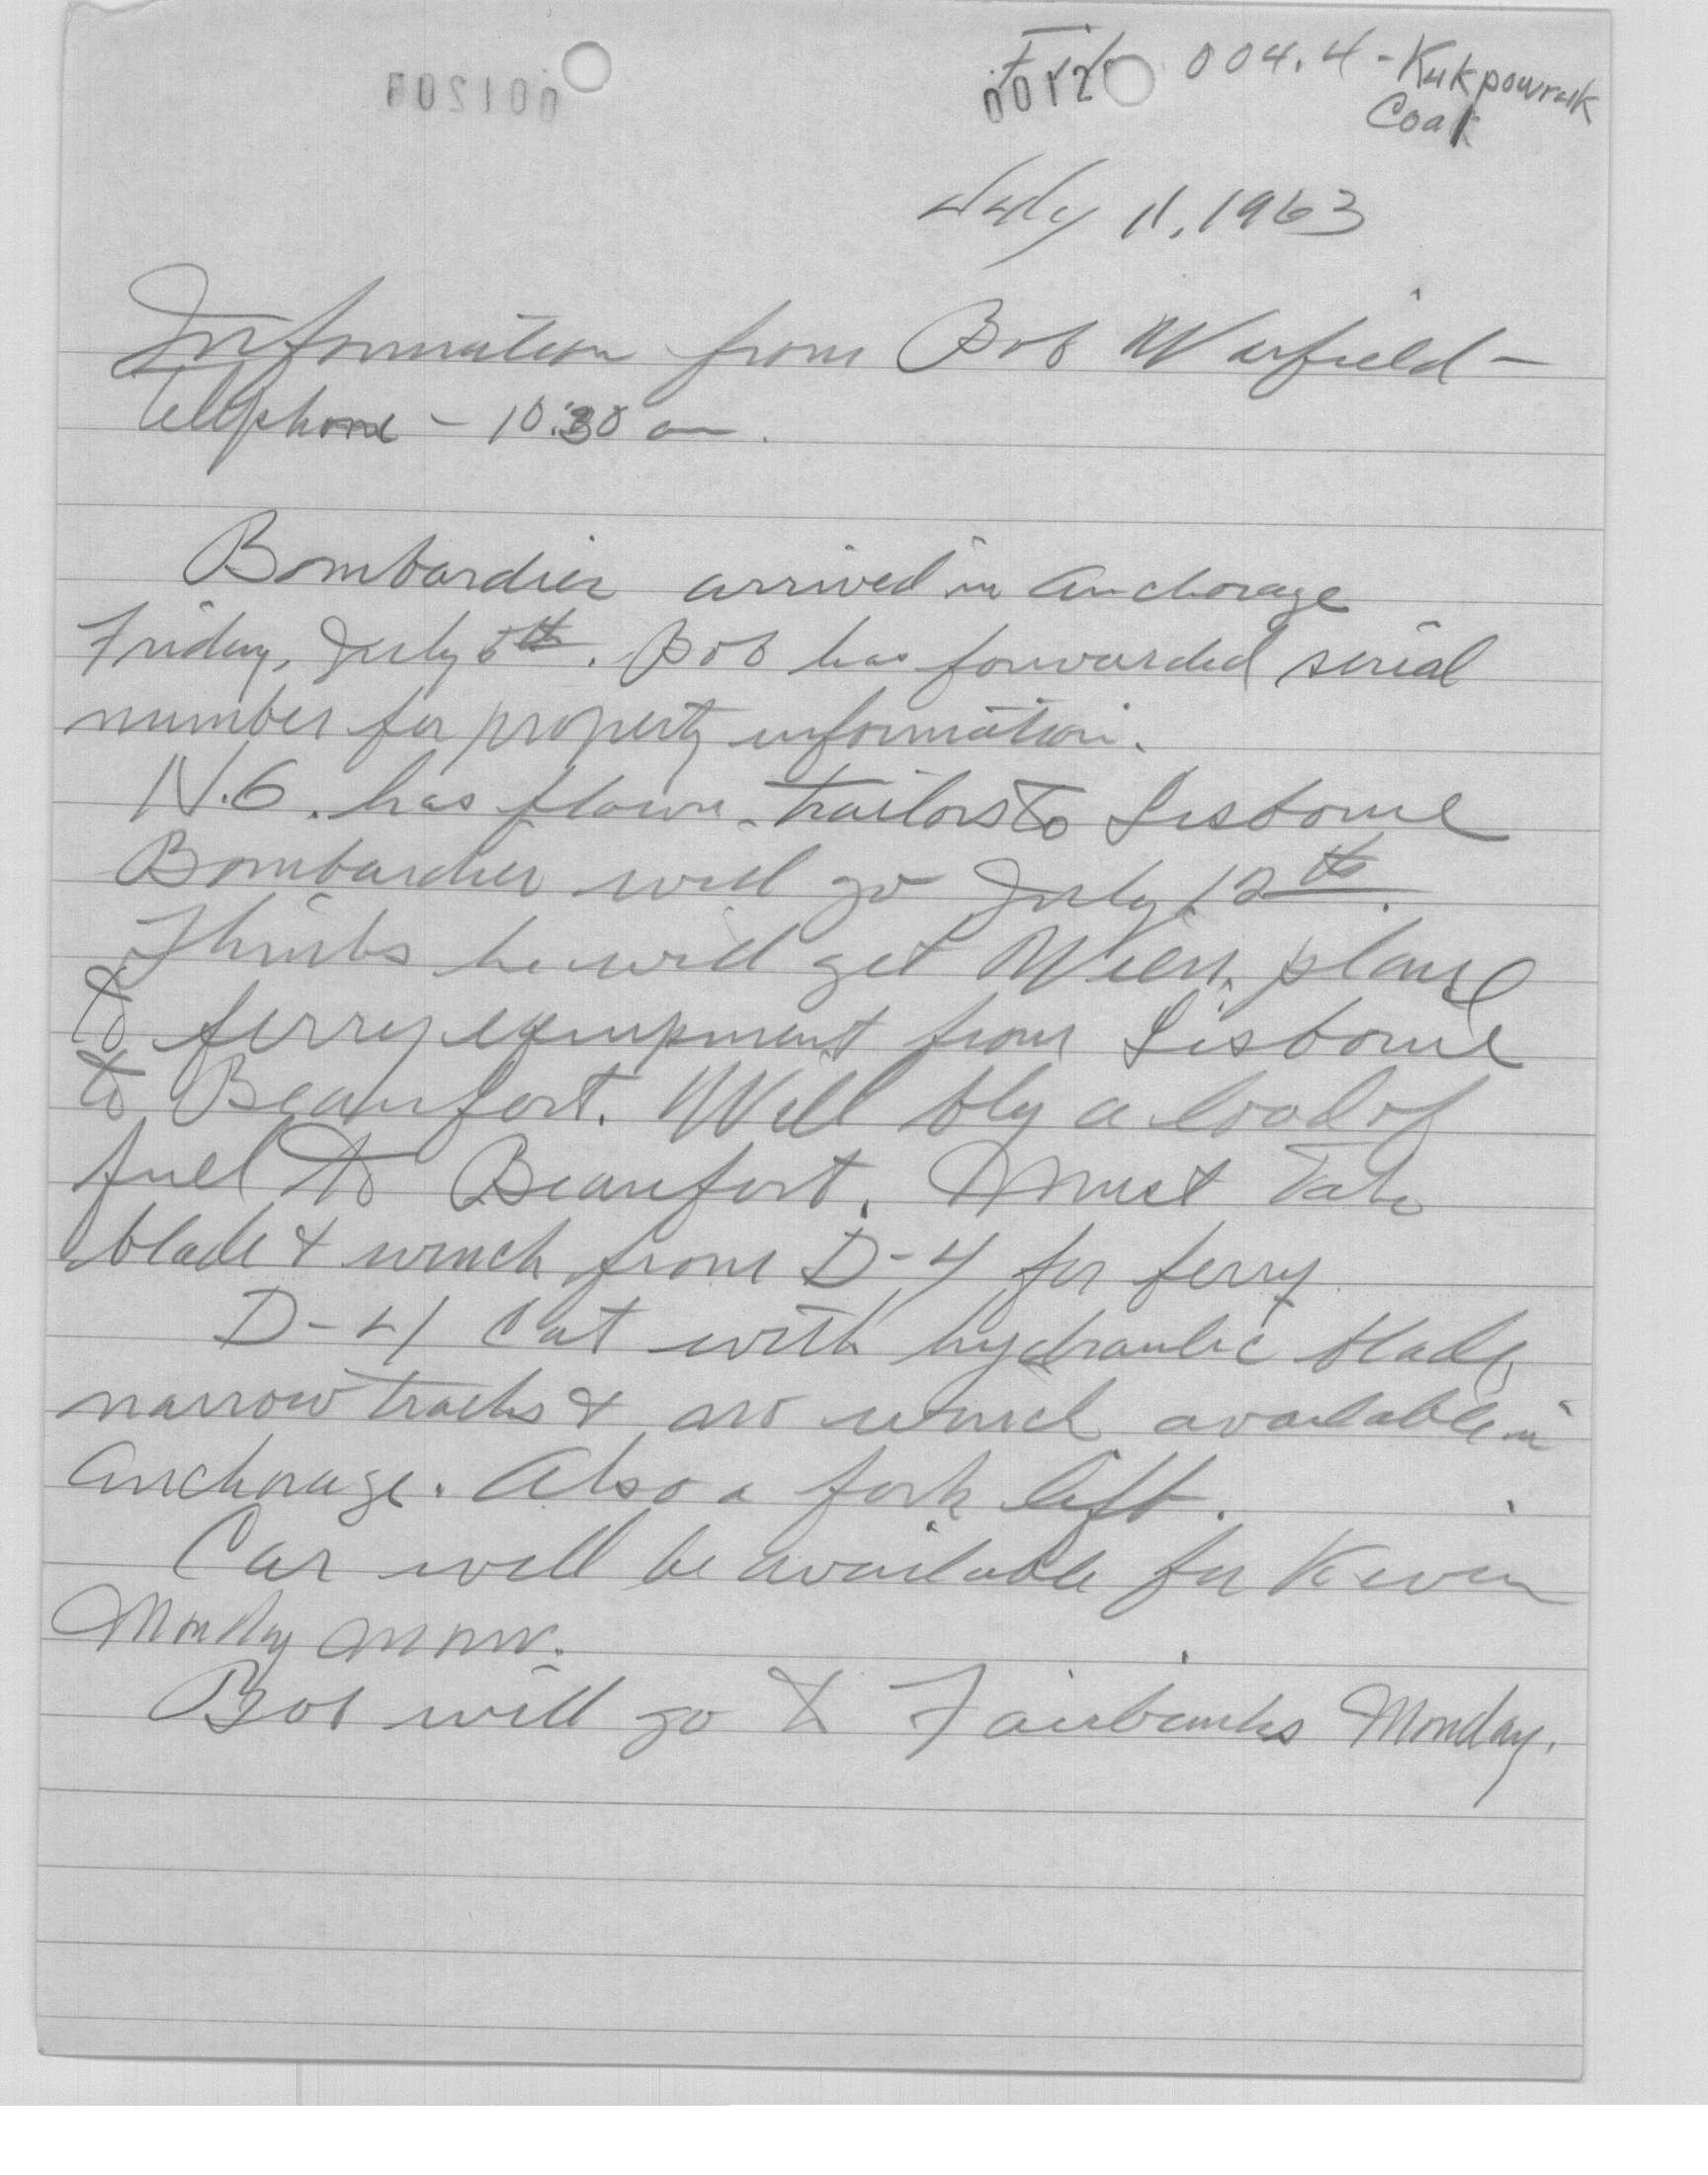 File 004.4 - Kukpowruk
Coal
0012
July 11, 1963
Information from Bob Warfield -
Telephone - 10:30 am.
Bombardier arrived in Anchorage
Friday, July 5th. Bob has forwarded serial
number for property information.
N.G. has flown trailors to Lisborne
Bombardier will go July 12th.
Thinks he will get Wien plane
to ferry equipment from Lisborne
to Beaufort. Will fly a load of
fuel to Beaufort. Must take
blade & winch from D-4 for ferry
D-4 Cat with hydraulic blade,
narrow tracks & no winch available in
Anchorage. Also a fork lift.
Car will be available for
Monday morn.
Bob will go to Fairbanks Monday.